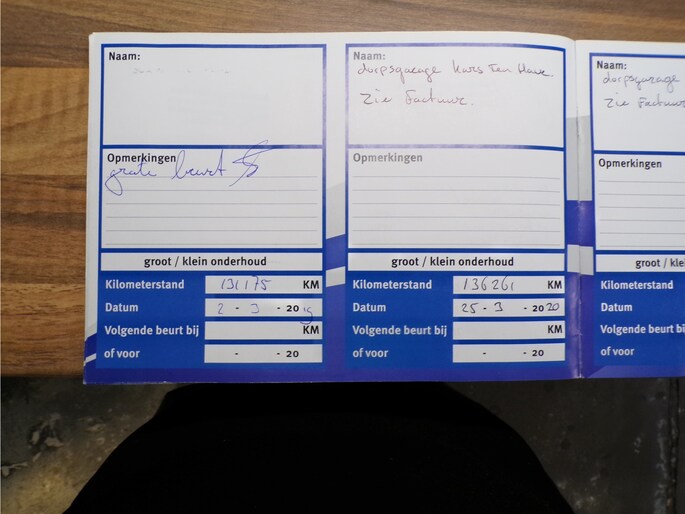 Naam:
Opmerkingen
grote beurt
groot / klein onderhoud
Kilometerstand 131175 KM
Datum 2 - 3 - 20 19
Volgende beurt bij KM
of voor - - 20
Naam:
dorpsgarage Kars Ten Have
zie Factuur.
Opmerkingen
groot / klein onderhoud
Kilometerstand 136261 KM
Datum 25 - 3 - 20 20
Volgende beurt bij KM
of voor - - 20
Naam:
dorpsgarage
zie Factuur
Opmerkingen
groot / kle
Kilometerstand
Datum
Volgende beurt bi
of voor